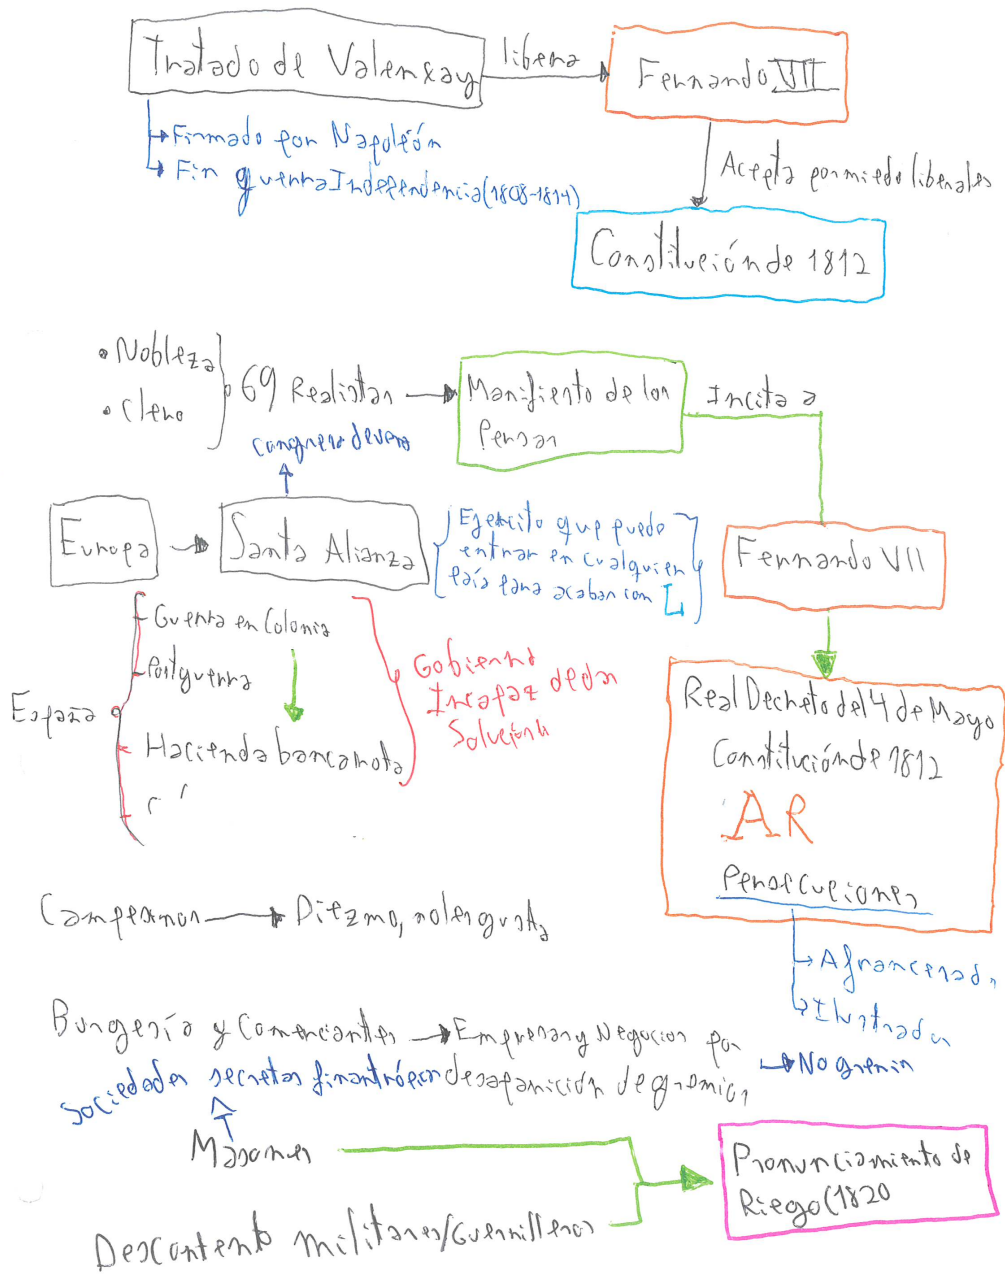 Tratado de Valençay
libera
Fernando VII
Firmado por Napoleón
Fin guerra Independencia (1808-1814)
Acepta por miedo liberales
Constitución de 1812
• Nobleza
• Clero
69 Realistas
Manifiesto de los
Persas
Incita a
Congreso de
Europa
Santa Alianza
Ejército que puede
entrar en cualquier
país para acabar con L
Fernando VII
España
Guerra en Colonia
Postguerra
Hacienda bancarrota
Gobierno
Incapaz de dar
Solución
Real Decreto del 4 de Mayo
Constitución de 1812
AR
Persecuciones
Afrancesad
Ilustrados
Campesinos
Diezmo, no les gusta
Burgesía y Comerciantes
Empresas y Negocios por
desaparición de gremios
No gremio
Sociedades secretas
Masones
Descontento militares/Guerrilleros
Pronunciamiento de
Riego (1820